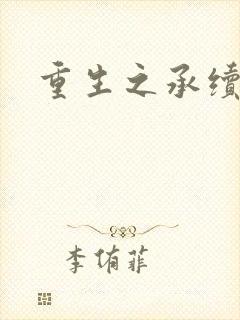 重生之承续
李侑菲